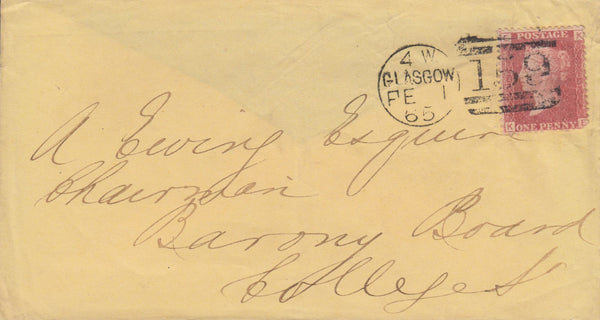 POSTAGE
4 W
GLASGOW
FE 1
65
159
ONE PENNY
A Ewing Esquire
Chairman
Barony Board
College St